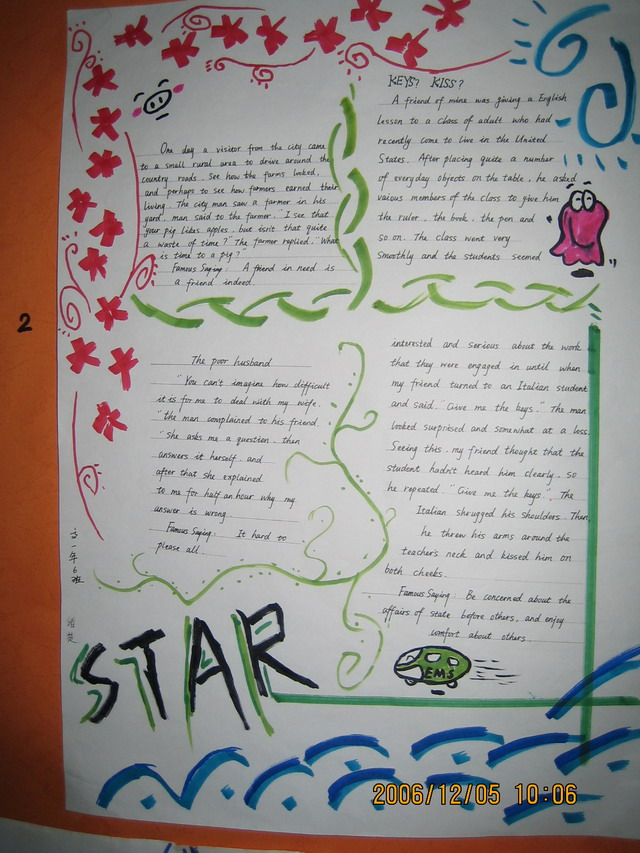 2
One day a visitor from the city came
to a small rural area to drive around the
country roads. See how the farms looked,
and perhaps to see how farmers earned their
living. The city man saw a farmer in his
yard. man said to the farmer. "I see that
your pig likes apples, but isn't that quite
a waste of time?" The farmer replied. "What
is time to a pig?
Famous Saying: A friend in need is
a friend indeed.
KEYS? KISS?
A friend of mine was giving a English
lesson to a class of adult who had
recently come to live in the United
States. After placing quite a number
of everyday objects on the table, he asked
vaious members of the class to give him
the ruler. the book. the pen and
so on. The class went very
Smoothly and the students seemed
interested and serious about the work
that they were engaged in until when
my friend turned to an Italian student
and said. "Give me the keys." The man
looked surprised and somewhat at a loss.
Seeing this, my friend thought that the
student hadn't heard him clearly, so
he repeated. "Give me the keys." The
Italian shrugged his shoulders. Then,
he threw his arms around the
teacher's neck and kissed him on
both cheeks.
Famous Saying: Be concerned about the
affairs of state before others, and enjoy
comfort about others
The poor husband
"You can't imagine how difficult
it is for me to deal with my wife.
"the man complained to his friend.
"She asks me a question, then
answers it herself, and
after that she explained
to me for half an hour why my
answer is wrong.
Famous Saying: It hard to
please all.
高一年6班
STAR
EMS
2006/12/05 10:06